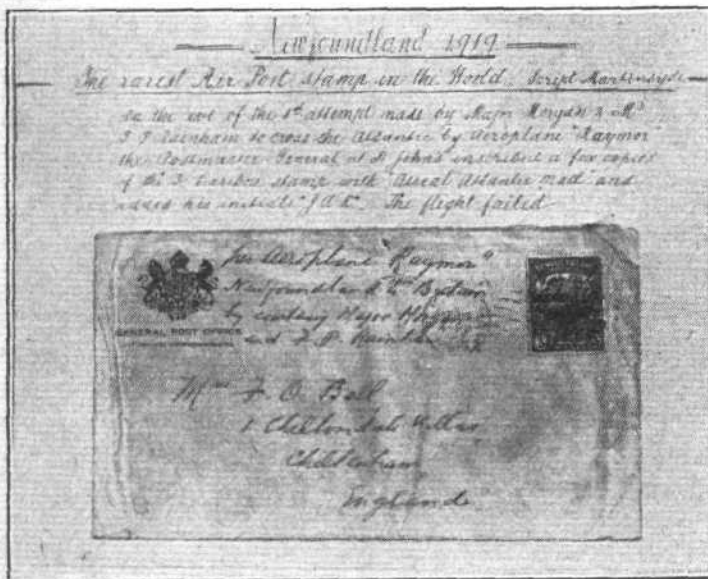 Newfoundland 1919
The rarest Air Post stamp in the World. Script Martinsyde
on the eve of the 1st attempt made by Major Morgan & Mr
to cross the Atlantic by Aeroplane "Raymor"
the Postmaster General at St Johns inscribed a few copies
of the 3 Caribou stamp with "Aerial Atlantic Mail" and
his initials "J.A.R". The flight failed
per Aeroplane "Raymor"
Newfoundland to Britain
by courtesy Major Morgan
and
GENERAL POST OFFICE
Bell
1
Cheltenham
England